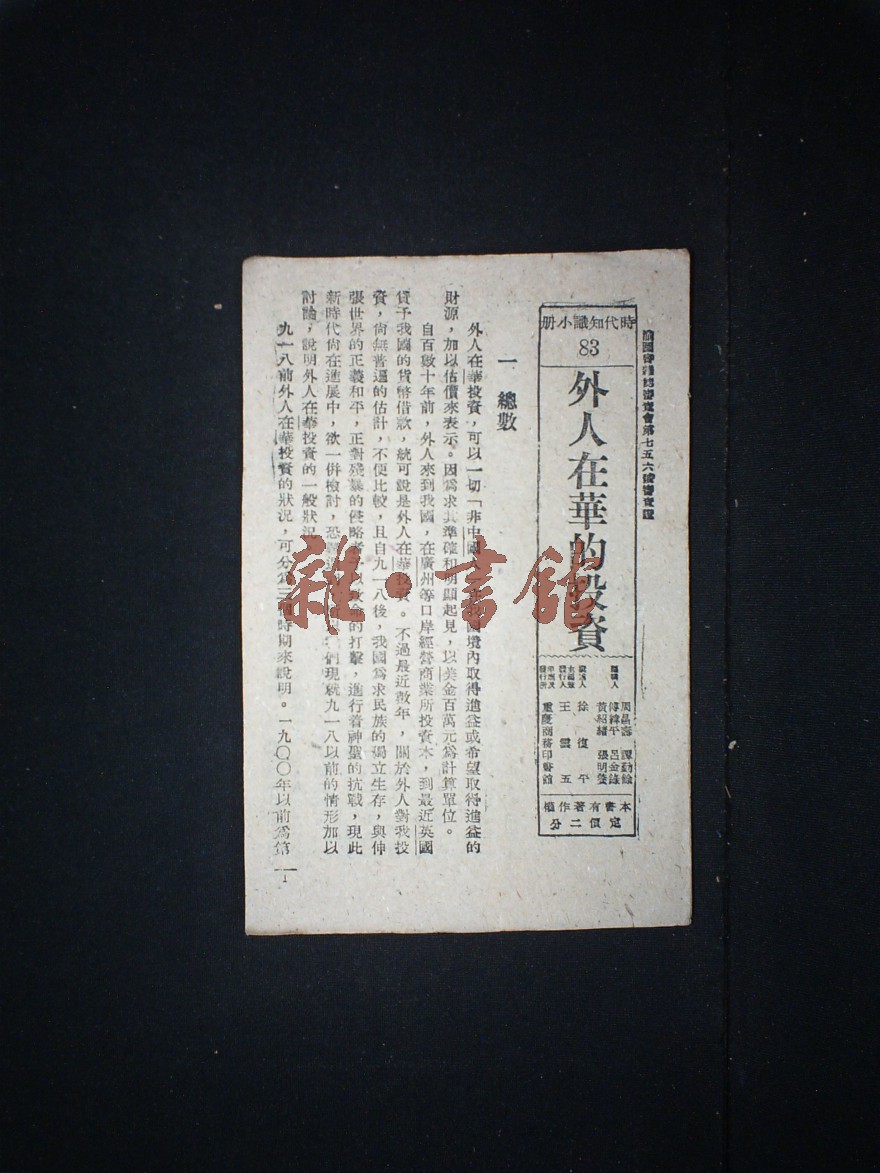 審查會第七五六號審查證
時代知識小册
83
外人在華的投資
編輯人 周昌壽 譚勤餘
傅緯平 呂金錄
黃紹緒 張明養
徐復平
發行人 王雲五
發行所 重慶商務印書館
本書有著作權
定價二分
一 總數
外人在華投資,可以一切「非中國 國境內取得進益或希望取得進益的
財源,加以估價來表示。因為求其準確和明顯起見,以美金百萬元為計算單位。
自百數十年前,外人來到我國,在廣州等口岸經營商業所投資本,到最近英國
貸予我國的貨幣借款,統可說是外人在華投資。不過最近數年,關於外人對我投
資,尚無普遍的估計,不便比較,且自九一八後,我國為求民族的獨立生存,與伸
張世界的正義和平,正對殘暴的侵略者予以致命的打擊,進行着神聖的抗戰,現此
新時代尚在進展中,欲一併檢討,恐 們現就九一八以前的情形加以
討論,說明外人在華投資的一般狀況
九一八前外人在華投資的狀況,可分為三個時期來說明。一九〇〇年以前為第
1
雜·書館